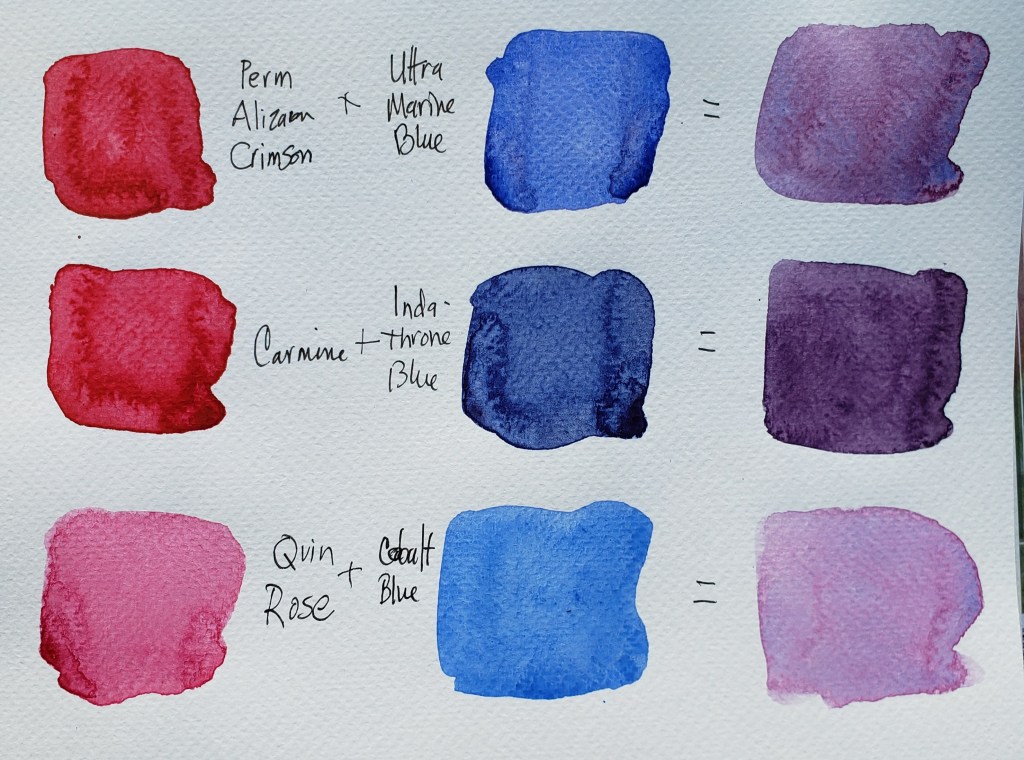 Perm
Alizarin
Crimson
+
Ultra
Marine
Blue
=
Carmine
+
Inda-
throne
Blue
=
Quin
Rose
+
Cobalt
Blue
=